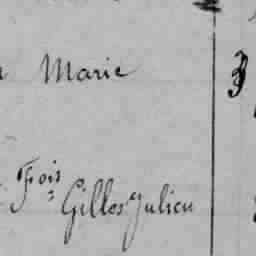 Marie
Fois Gilles Julien